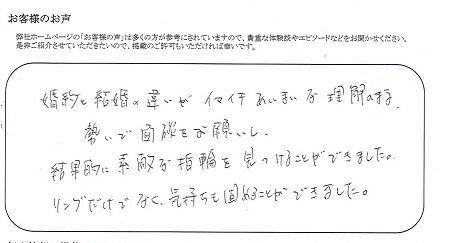 お客様のお声
弊社ホームページの「お客様の声」は多くの方が参考にされていますので、貴重な体験談やエピソードなどをお聞かせください。
是非ご紹介させていただきたいので、掲載のご許可もいただければ幸いです。
婚約と結婚の違いがイマイチあいまいな理解のまま、
勢いで面談をお願いし、
結果的に素敵な指輪を見つけることができました。
リングだけでなく、気持ちも固めることができました。